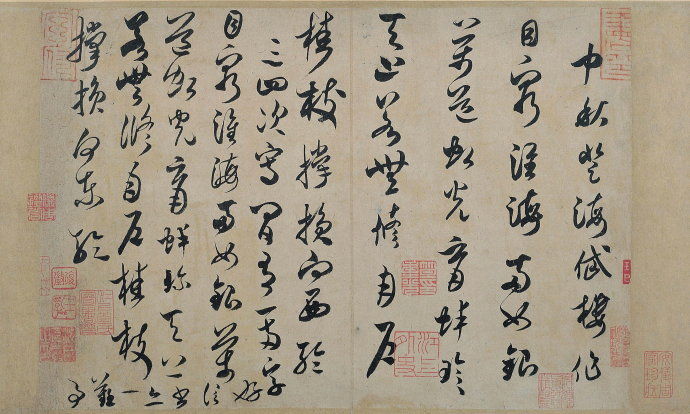 中秋登海岱樓作
目窮淮海兩如銀
萬道虹光育蚌珍
天上若無修月戶
桂枝撐損向西輪
三四次寫間有一兩字
好
信
書亦一
難
事
目窮淮海兩如銀萬
道虹光育蚌珍天上
若無修月戶桂枝
撐損向東輪